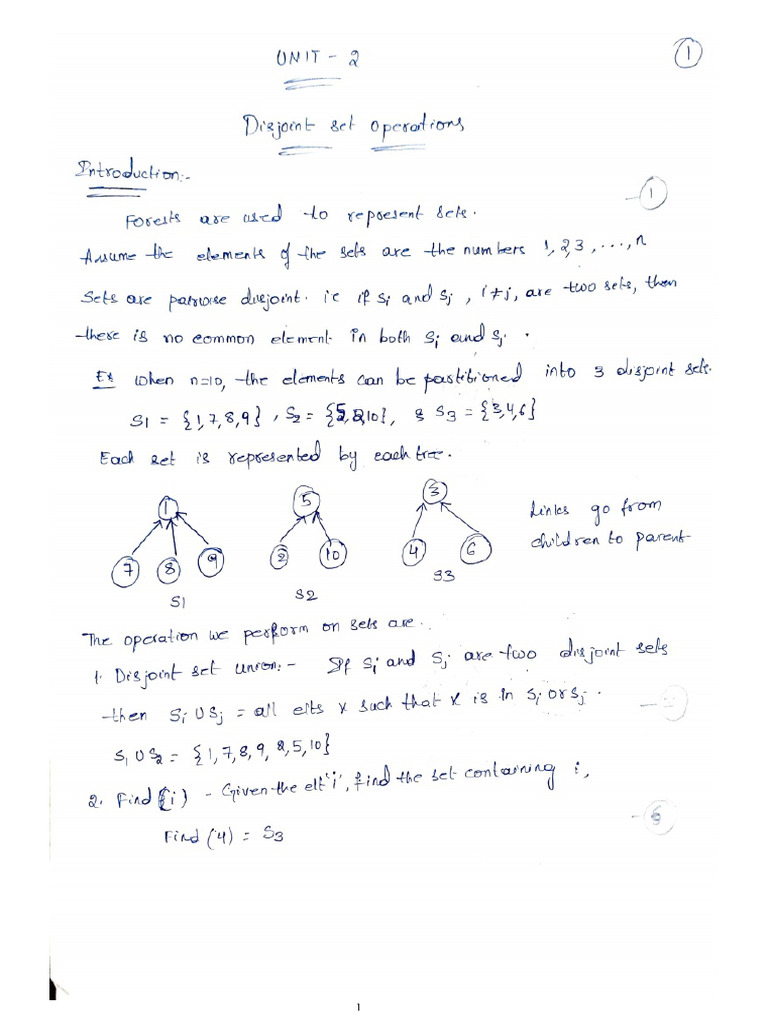 UNIT - 2
1
Disjoint set operations
Introduction:-
- 1
Forests are used to represent sets.
Assume the elements of the sets are the numbers 1, 2, 3, ...., n
Sets are pairwise disjoint. i.e if Si and Sj , i≠j, are two sets, then
there is no common element in both Si and Sj .
Ex When n=10, the elements can be partitioned into 3 disjoint sets.
S1 = {1,7,8,9} , S2 = {5,2,10}, & S3 = {3,4,6}
Each set is represented by each tree.
1 5 3
7 8 9 2 10 4 6
S1 S2 S3
Links go from
children to parent
The operation we perform on sets are.
1. Disjoint set union:- If Si and Sj are two disjoint sets
then Si U Sj = all elts x such that x is in Si or Sj .
S1 U S2 = {1,7,8,9, 2,5,10}
2. Find(i) - Given the elt 'i', find the set containing i,
Find (4) = S3
1